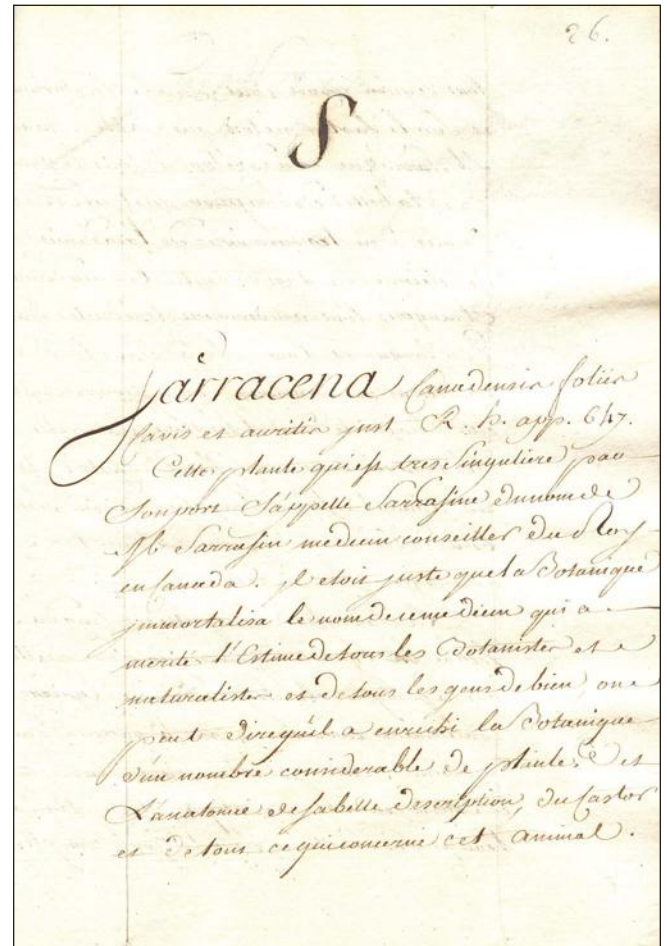 26.
S
Sarracena Canadensis foliis
Cavis et auritis jnst R. h. app. 647.
Cette plante qui est tres Singuliere par
Son port S'appelle Sarrasine du nom de
Mr Sarrasin medecin conseiller du Roy
en Canada. jl etoit juste que la Botanique
jmmortalisa le nom de ce medecin qui a
merité l'Estime de tous les Botanistes et
naturalistes et de tous les gens de bien, on
peut dire qu'il a enrichi la Botanique
d'un nombre considerable de plantes et
L'anatomie de sa belle description du Castor
et de tous ce qui concerne cet animal.